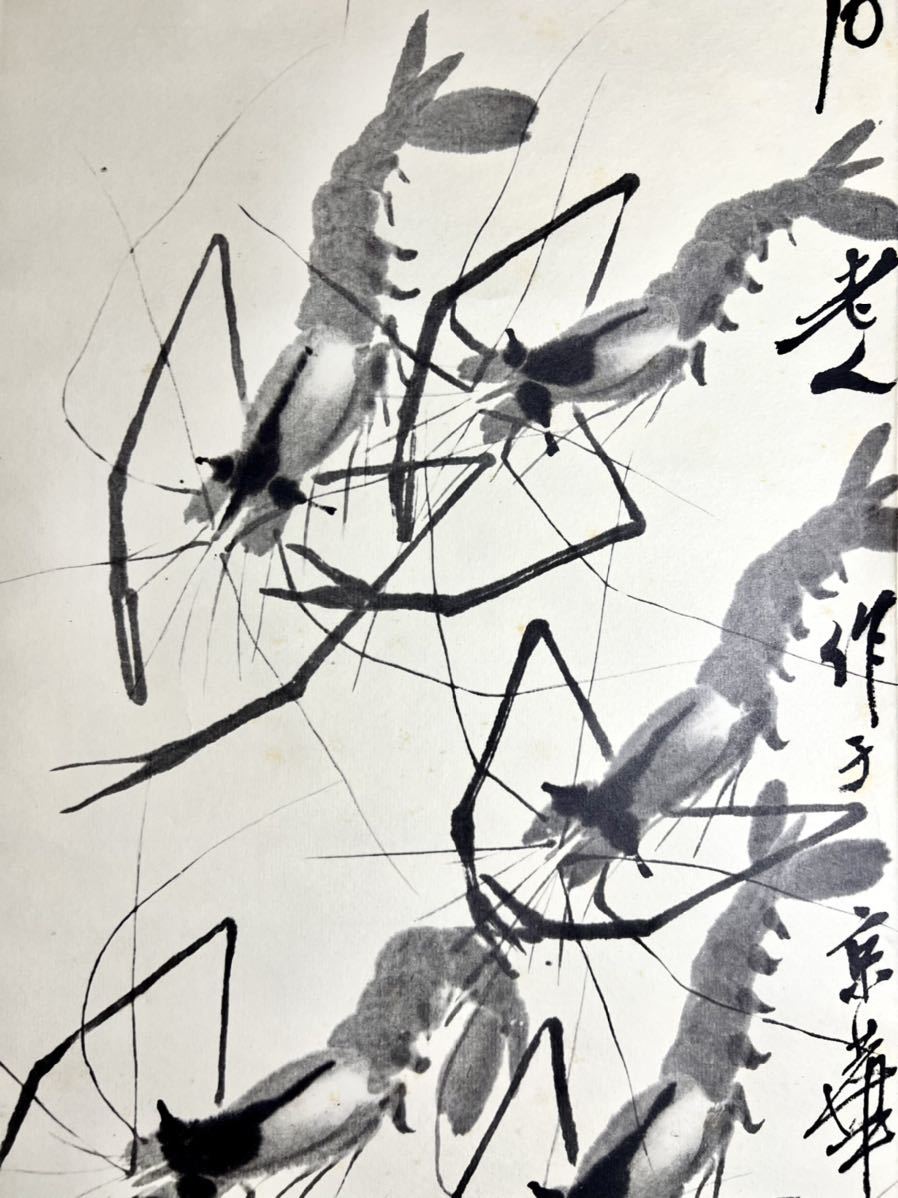 石老人作于京華